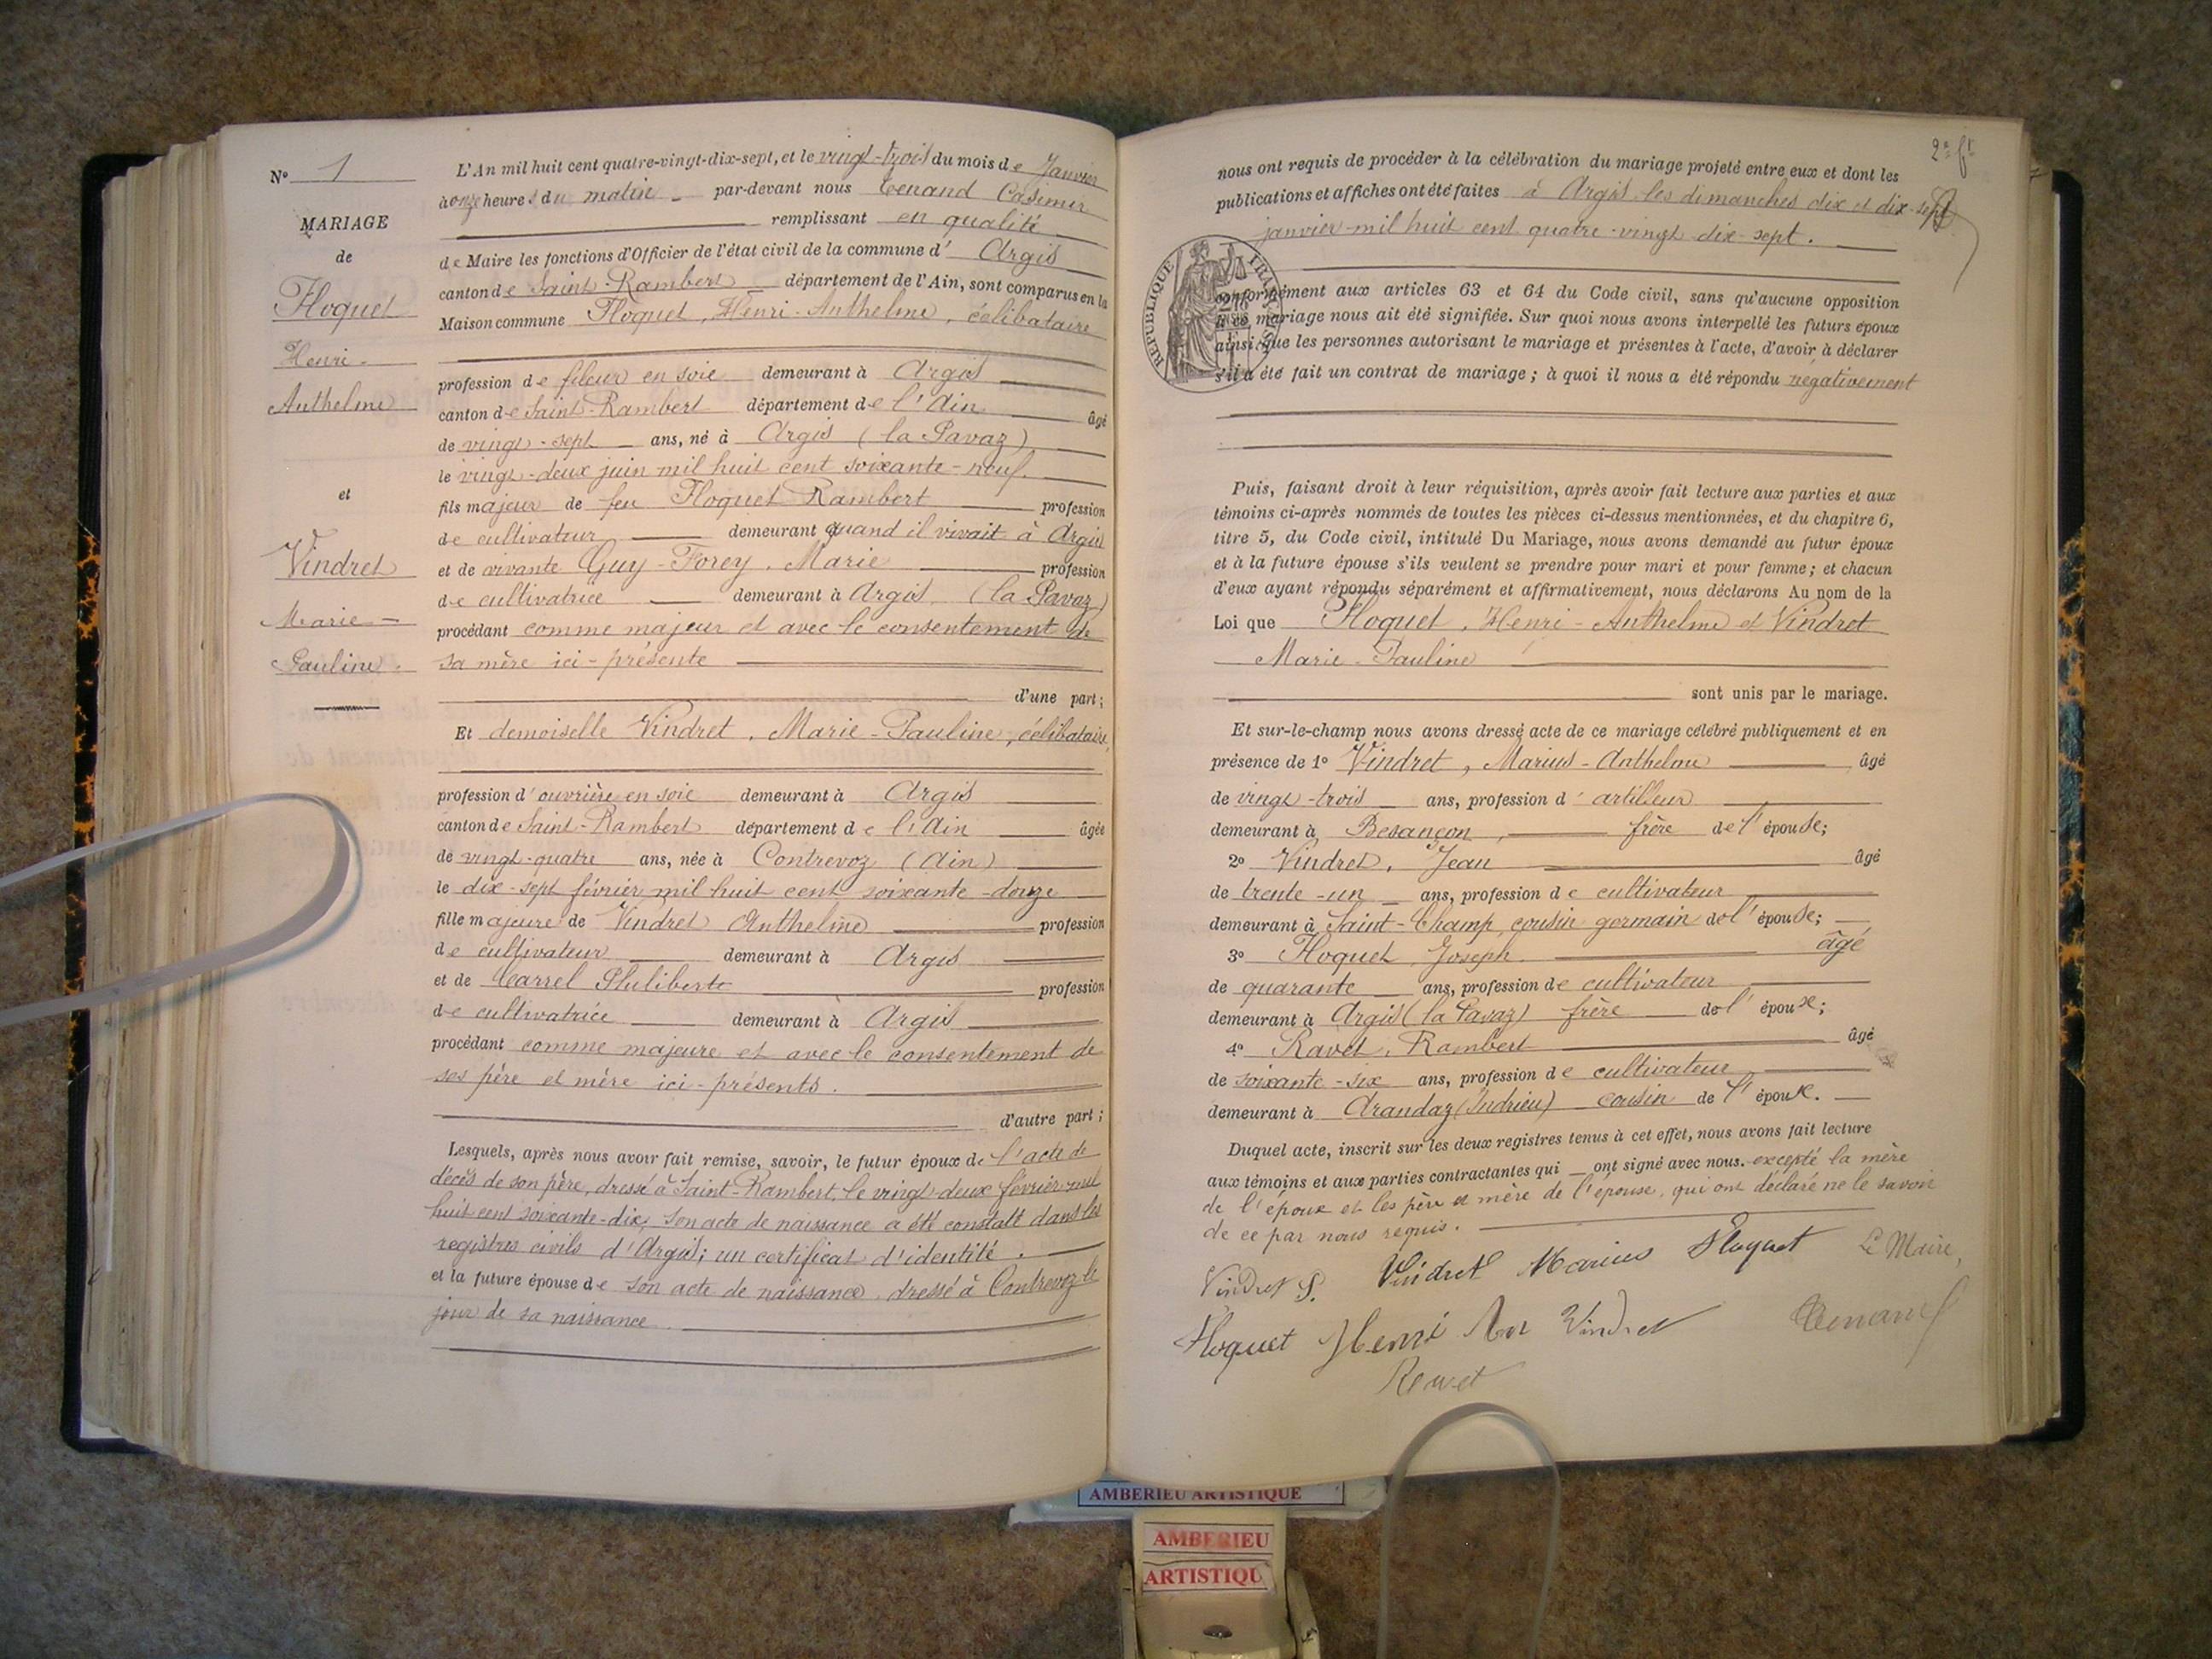 N° 1
MARIAGE
de
Floquet
Henri
Anthelme
et
Vindret
Marie
Pauline.
L'An mil huit cent quatre-vingt-dix-sept, et le vingt-trois du mois de Janvier
à onze heures du matin par-devant nous Tenand Casimir
remplissant en qualité
de Maire les fonctions d'Officier de l'état civil de la commune d' Argis
canton de Saint-Rambert département de l'Ain, sont comparus en la
Maison commune Floquet, Henri-Anthelme, célibataire
profession de fileur en soie demeurant à Argis
canton de Saint-Rambert département de l'Ain âgé
de vingt-sept ans, né à Argis (la Pavaz)
le vingt-deux juin mil huit cent soixante-neuf.
fils majeur de feu Floquet Rambert profession
de cultivateur demeurant quand il vivait à Argis
et de vivante Guy-Forey, Marie profession
de cultivatrice demeurant à Argis, (la Pavaz)
procédant comme majeur et avec le consentement de
sa mère ici-présente
d'une part;
Et demoiselle Vindret, Marie-Pauline, célibataire,
profession d'ouvrière en soie demeurant à Argis
canton de Saint-Rambert département de l'Ain âgée
de vingt-quatre ans, née à Contrevoz (Ain)
le dix-sept février mil huit cent soixante-douze
fille majeure de Vindret Anthelme profession
de cultivateur demeurant à Argis
et de Carrel Philiberte profession
de cultivatrice demeurant à Argis
procédant comme majeure et avec le consentement de
ses père et mère ici-présents.
d'autre part;
Lesquels, après nous avoir fait remise, savoir, le futur époux de l'acte de
décès de son père, dressé à Saint-Rambert, le vingt-deux février mil
huit cent soixante-dix, son acte de naissance a été constaté dans les
registres civils d'Argis; un certificat d'identité.
et la future épouse de son acte de naissance dressé à Contrevoz le
jour de sa naissance
2e ft
nous ont requis de procéder à la célébration du mariage projeté entre eux et dont les
publications et affiches ont été faites à Argis les dimanches dix et dix-sept
janvier mil huit cent quatre-vingt-dix-sept.
REPUBLIQUE FRANÇAISE
conformément aux articles 63 et 64 du Code civil, sans qu'aucune opposition
à ce mariage nous ait été signifiée. Sur quoi nous avons interpellé les futurs époux
ainsi que les personnes autorisant le mariage et présentes à l'acte, d'avoir à déclarer
s'il a été fait un contrat de mariage; à quoi il nous a été répondu négativement
Puis, faisant droit à leur réquisition, après avoir fait lecture aux parties et aux
témoins ci-après nommés de toutes les pièces ci-dessus mentionnées, et du chapitre 6,
titre 5, du Code civil, intitulé Du Mariage, nous avons demandé au futur époux
et à la future épouse s'ils veulent se prendre pour mari et pour femme; et chacun
d'eux ayant répondu séparément et affirmativement, nous déclarons Au nom de la
Loi que Floquet, Henri-Anthelme et Vindret
Marie-Pauline
sont unis par le mariage.
Et sur-le-champ nous avons dressé acte de ce mariage célébré publiquement et en
présence de 1° Vindret, Marius-Anthelme âgé
de vingt-trois ans, profession d'artilleur
demeurant à Besançon, frère de l'épouse;
2° Vindret, Jean âgé
de trente-un ans, profession de cultivateur
demeurant à Saint-Champ, cousin germain de l'épouse;
3° Floquet Joseph. âgé
de quarante ans, profession de cultivateur
demeurant à Argis (la Pavaz) frère de l'époux;
4° Ravet, Rambert âgé
de soixante-six ans, profession de cultivateur
demeurant à Arandaz (Indrieu) cousin de l'époux.
Duquel acte, inscrit sur les deux registres tenus à cet effet, nous avons fait lecture
aux témoins et aux parties contractantes qui ont signé avec nous. excepté la mère
de l'époux et les père et mère de l'épouse, qui ont déclaré ne le savoir
de ce par nous requis.
Vindret P. Vindret Marius Floquet Le Maire,
Floquet Henri Vindret Tenand
Ravet
AMBERIEU ARTISTIQUE
AMBERIEU
ARTISTIQU